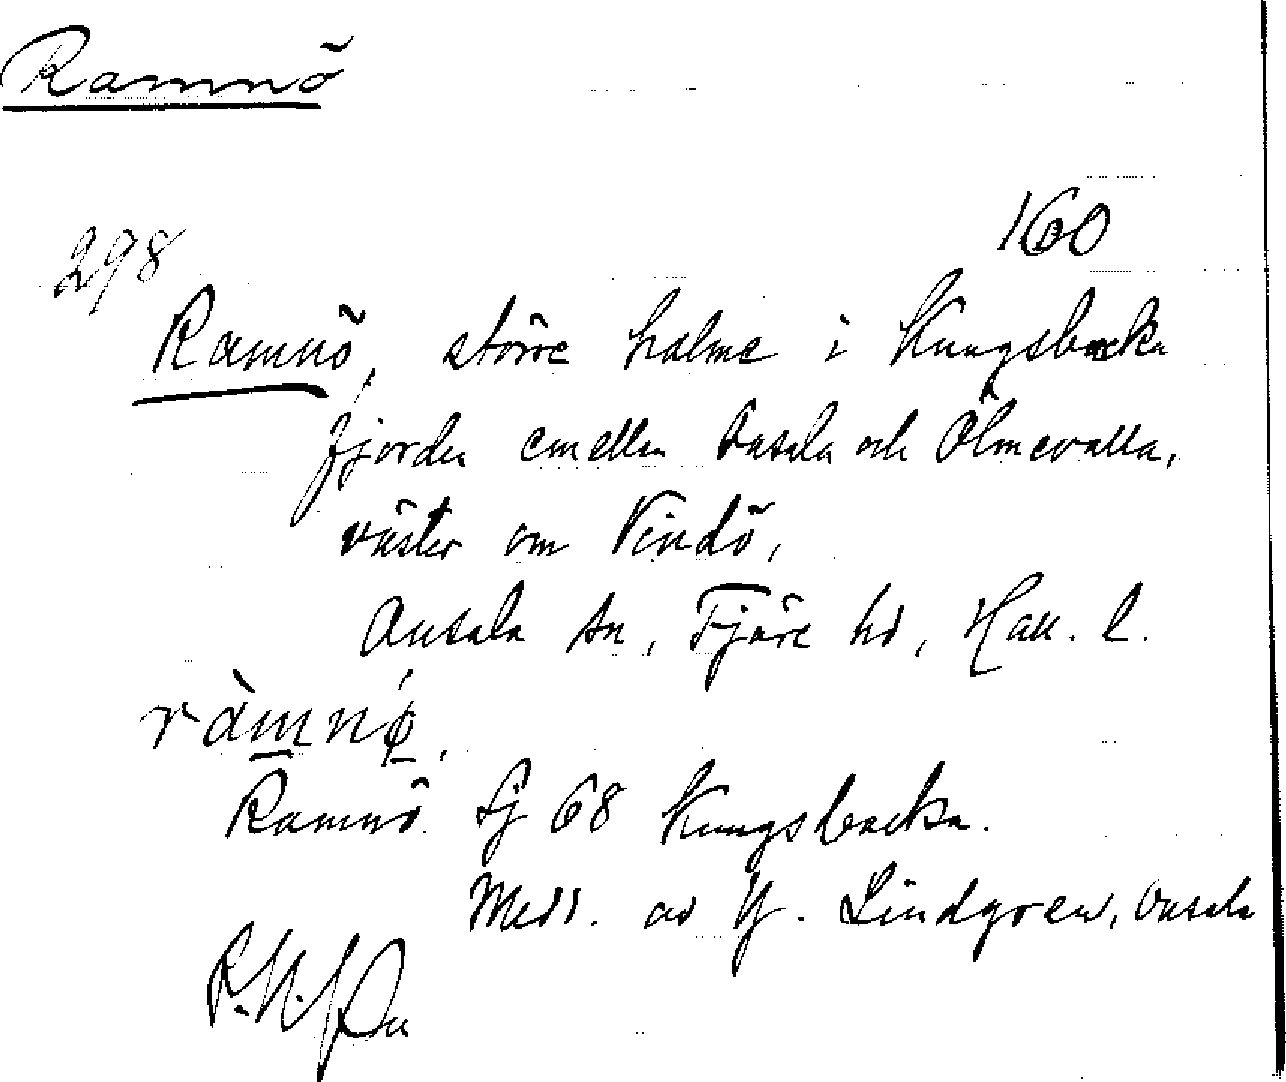 Ramnö
160
298
Ramnö, större holme i Kungsbacka
fjorden emellan Onsala och Ölmevalla,
väster om Vindö,
Onsala sn, Fjäre hd, Hall. l.
ràmnǿ.
Ramnö Sj 68 Kungsbacka.
Medd. av Y. Lindgren, Onsala